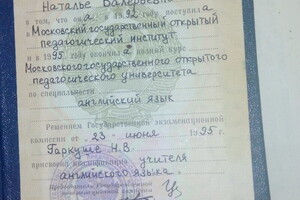 Наталье Валерьевне
в том, что она в 1992 году поступила
Московский государственный открытый
педагогический институт
и в 1995 году окончила полный курс
Московского государственного открытого
педагогического университета
по специальности
английский язык
Решением Государственной экзаменационной
комиссии от 23 июня 1995 г.
Гаркуше Н.В.
присвоена квалификация учителя
английского языка.
Председатель Государственной
экзаменационной комиссии